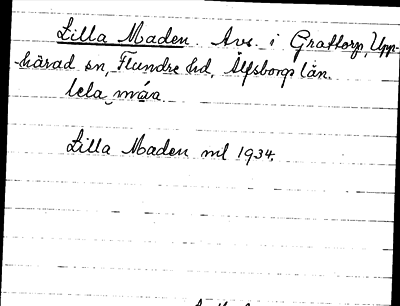 Lilla Maden. Avs. i Grattorp, Upp-
härad sn, Flundre hd, Älfsborgs län.
lela, mán

Lilla Maden ml 1934.